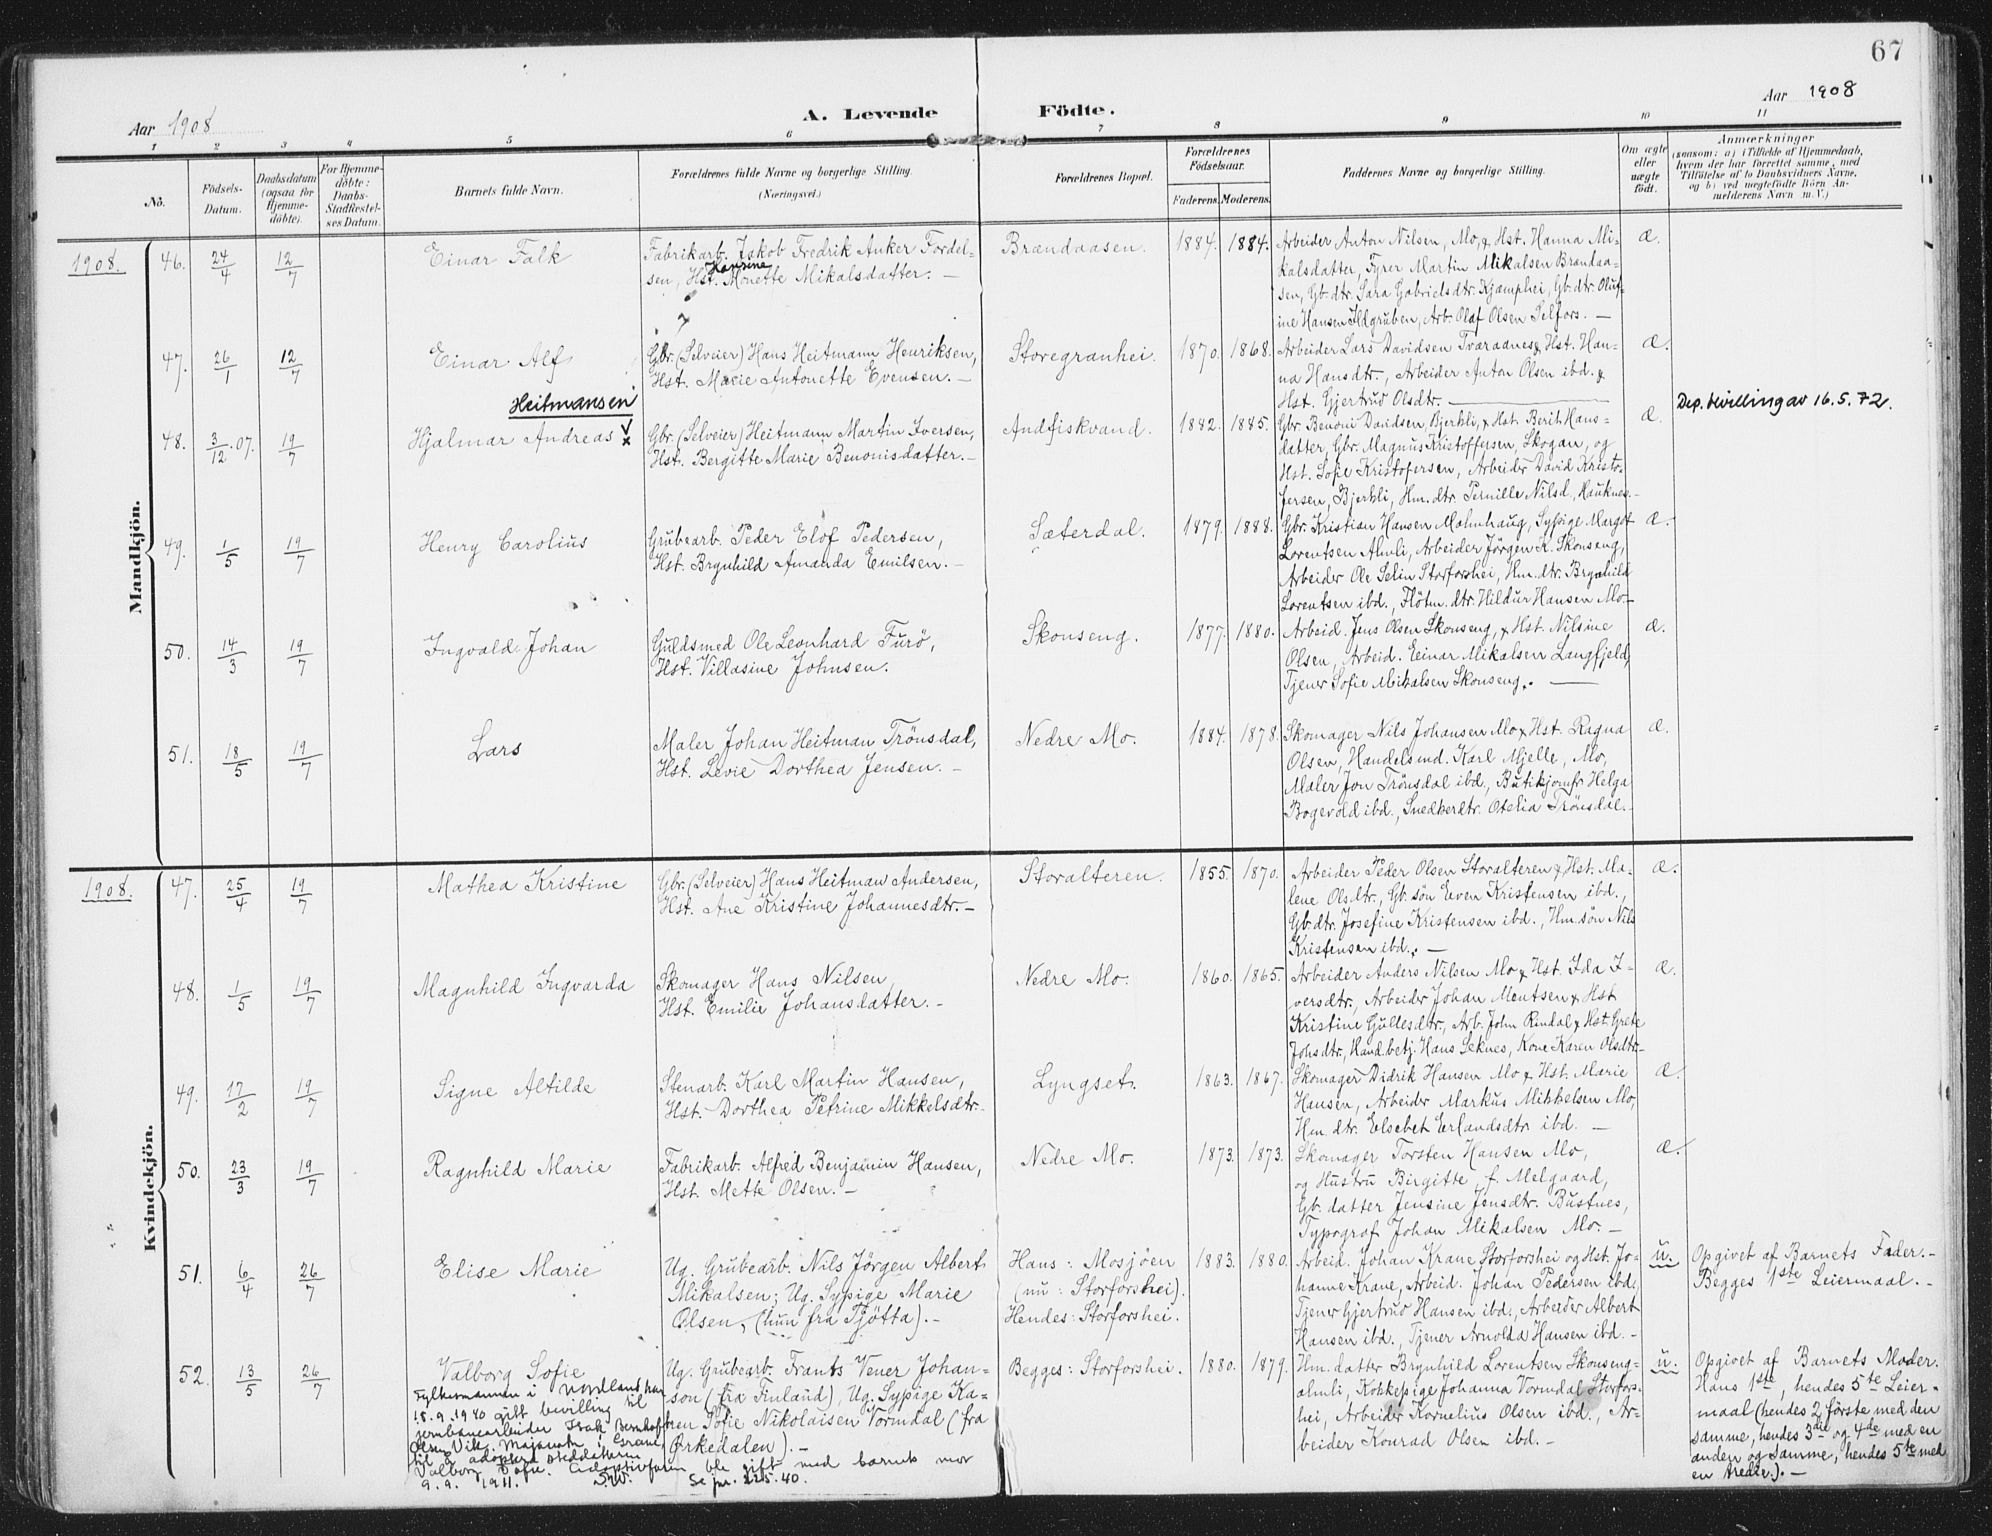 67
Aar 1908
A. Levende Födte.
Aar 1908
1 2 3 4 5 6 7 8 9 10 11
No.
Födsels-Datum.
Daabsdatum (ogsaa for Hjemme-döbte).
For Hjemme-döbte: Daabs-Stadfæstel-ses Datum.
Barnets fulde Navn.
Forældrenes fulde Navne og borgerlige Stilling. (Næringsvei.)
Forældrenes Bopæl.
Forældrenes Födselsaar.
Faderens. Moderens.
Faddernes Navne og borgerlige Stilling.
Om ægte eller uægte födt.
Anmærkninger
(saasom: a) i Tilfælde af Hjemmedaab,
hvem der har forrettet samme, med
Tilföielse af to Daabsvidners Navne,
og b) ved uægtefödte Börn An-
melderens Navn m. V.)
Mandkjön.
1908. 46. 24/4 12/7 Einar Falk
Fabrikarb. Jakob Fredrik Anker Fordel-
Hansine
sen, Hst. Monette Mikalsdatter. —
Brændaasen. 1884. 1884.
Arbeider Anton Nilsen, Mo, & Hst. Hanna Mi-
kalsdatter, Fyrer Martin Mikalsen Brændaa-
sen, Gb. dtr. Sara Gabrielsdtr. Kjæmphei, Gb. dtr. Oluf-
ine Hansen Ildgruben, Arb. Olaf Olsen Selfors. —
Æ.
47. 26/1 12/7 Einar Alf
Gbr. (Selveier) Hans Heitmann Henriksen,
Hst. Marie Antonette Evensen. —
Storegranhei. 1870. 1868.
Arbeider Lars Davidsen Tværaadnes & Hst. Han-
na Hansdtr., Arbeider Anton Olsen ibd. &
Hst. Gjertrud Olsdtr. —
Æ.
Heitmansen
48. 3/12.07. 19/7 Hjalmar Andreas
Gbr. (Selveier) Heitmann Martin Iversen,
Hst. Bergitte Marie Benonisdatter. —
Andfiskvand. 1882. 1885.
Gbr. Benoni Davidsen, Bjerkli, & Hst. Berit Hans-
datter, Gbr. Magnus Kristoffersen, Skogan, og
Hst. Sofie Kristofersen, Arbeider David Kristo-
fersen, Bjerkli, Hm. dtr. Pernille Nilsd., Hauknes. —
Æ.
Dep. bevilling av 16.5.72.
49. 1/5 19/7 Henry Carolius
Grubearb. Peder Elof Pedersen,
Hst. Brynhild Amanda Emilsen. —
Sæterdal. 1879. 1888.
Gbr. Kristian Hansen Malmhaug, Sypige Margot
Lorentsen Almli, Arbeider Jörgen K. Skonseng,
Arbeider Ole Selin Storforshei, Hm. dtr. Brynhild
Lorentsen ibd., Flötm. dtr. Hildur Hansen Mo. —
Æ.
50. 14/3 19/7 Ingvald Johan
Guldsmed Ole Leonhard Furö,
Hst. Villasine Johnsen.
Skonseng. 1877. 1880.
Arbeid. Jens Olsen Skonseng, & Hst. Nilsine
Olsen, Arbeid. Einar Mikalsen Langfjeld,
Tjener Sofie Mikalsen Skonseng. —
Æ.
51. 18/5 19/7 Lars
Maler Johan Heitman Trönsdal,
Hst. Levie Dorthea Jensen. —
Nedre Mo. 1884. 1878.
Skomager Nils Johansen Mo & Hst. Ragna
Olsen, Handelsmd. Karl Mjelle, Mo,
Maler Jon Trönsdal ibd., Butikjomfr. Helga
Bogevold ibd., Snedkerdtr. Otelia Trönsdal. —
Æ.
Kvindekjön.
1908. 47. 25/4 19/7 Mathea Kristine
Gbr. (Selveier) Hans Heitman Andersen,
Hst. Ane Kristine Johannesdtr. —
Storalteren. 1855. 1870.
Arbeider Peder Olsen Storalteren & Hst. Ma-
lene Olsdtr., Gb. sön Even Kristensen ibd.,
Gb. dtr. Josefine Kristensen ibd., Hm. sön Nils
Kristensen ibd. —
Æ.
48. 1/5 19/7 Magnhild Ingvarda
Skomager Hans Nilsen,
Hst. Emilie Johansdatter. —
Nedre Mo. 1860. 1865.
Arbeider Anders Nilsen Mo & Hst. Ida I-
versdtr., Arbeider Johan Mentsen & Hst.
Kristine Gullesdtr., Arb. John Rindal & Hst. Grete
Johsdtr., Hand.betj. Hans Seknes, Kone Karen Olsdtr. —
Æ.
49. 17/2 19/7 Signe Altilde
Stenarb. Karl Martin Hansen,
Hst. Dorthea Petrine Mikkelsdtr. —
Lyngset. 1863. 1867.
Skomager Didrik Hansen Mo & Hst. Marie
Hansen, Arbeider Markus Mikkelsen Mo,
Hm. dtr. Elsebet Erlandsdtr. ibd. —
Æ.
50. 23/3 19/7 Ragnhild Marie
Fabrikarb. Alfred Benjamin Hansen,
Hst. Mette Olsen. —
Nedre Mo. 1873. 1873.
Skomager Torsten Hansen Mo,
og Hustru Birgitte f. Melgaard,
Gb. datter Jensine Jensdtr. Bustnes,
Typograf Johan Mikalsen Mo. —
Æ.
51. 6/4 26/7 Elise Marie
Ug. Grubearb. Nils Jörgen Albert
Mikalsen; Ug. Sypige Marie
Olsen, (hun fra Tjötta). —
Hans: Mosjöen
(nu: Storforshei).
Hendes: Storforshei.
1883. 1880.
Arbeid. Johan Krane Storforshei og Hst. Jo-
hanne Krane, Arbeid. Johan Pedersen ibd.,
Tjener Gjertrud Hansen ibd., Arbeider Albert
Hansen ibd., Tjener Arnolda Hansen ibd. —
U.
Opgivet af Barnets Fader. —
Begges 1ste Leiermaal. —
52. 13/5 26/7 Valborg Sofie
Ug. Grubearb. Frants Vener Johan-
son (fra Finland), Ug. Sypige Ka-
ren Sofie Nikolaisen Vormdal (fra
Ørkedalen). —
Begges: Storforshei. 1880. 1879.
Hm. datter Brynhild Lorentsen Skonseng-
almli, Kokkepige Johanna Vormdal Storfors-
hei, Arbeider Kornelius Olsen ibd., Ar-
beider Konrad Olsen ibd. —
U.
Opgivet af Barnets Moder.
Hans 1ste, hendes 5te Leier-
maal (hendes 2 första med den
samme, hendes 3die og 4de med en
anden og samme, hendes 5te med
en tredie). —
Fylkesmannen i Nordland har
18.9.1940 gitt bevilling til
jernbanearbeider Isak Bernhof
Olsen Vik. Majavatn i Grane,
til å adoptere steddatteren
Valborg Sofie. Adoptivfaren ble gift med barnets mor
9.9. 1911. S.W. Se jnr. 225.40.